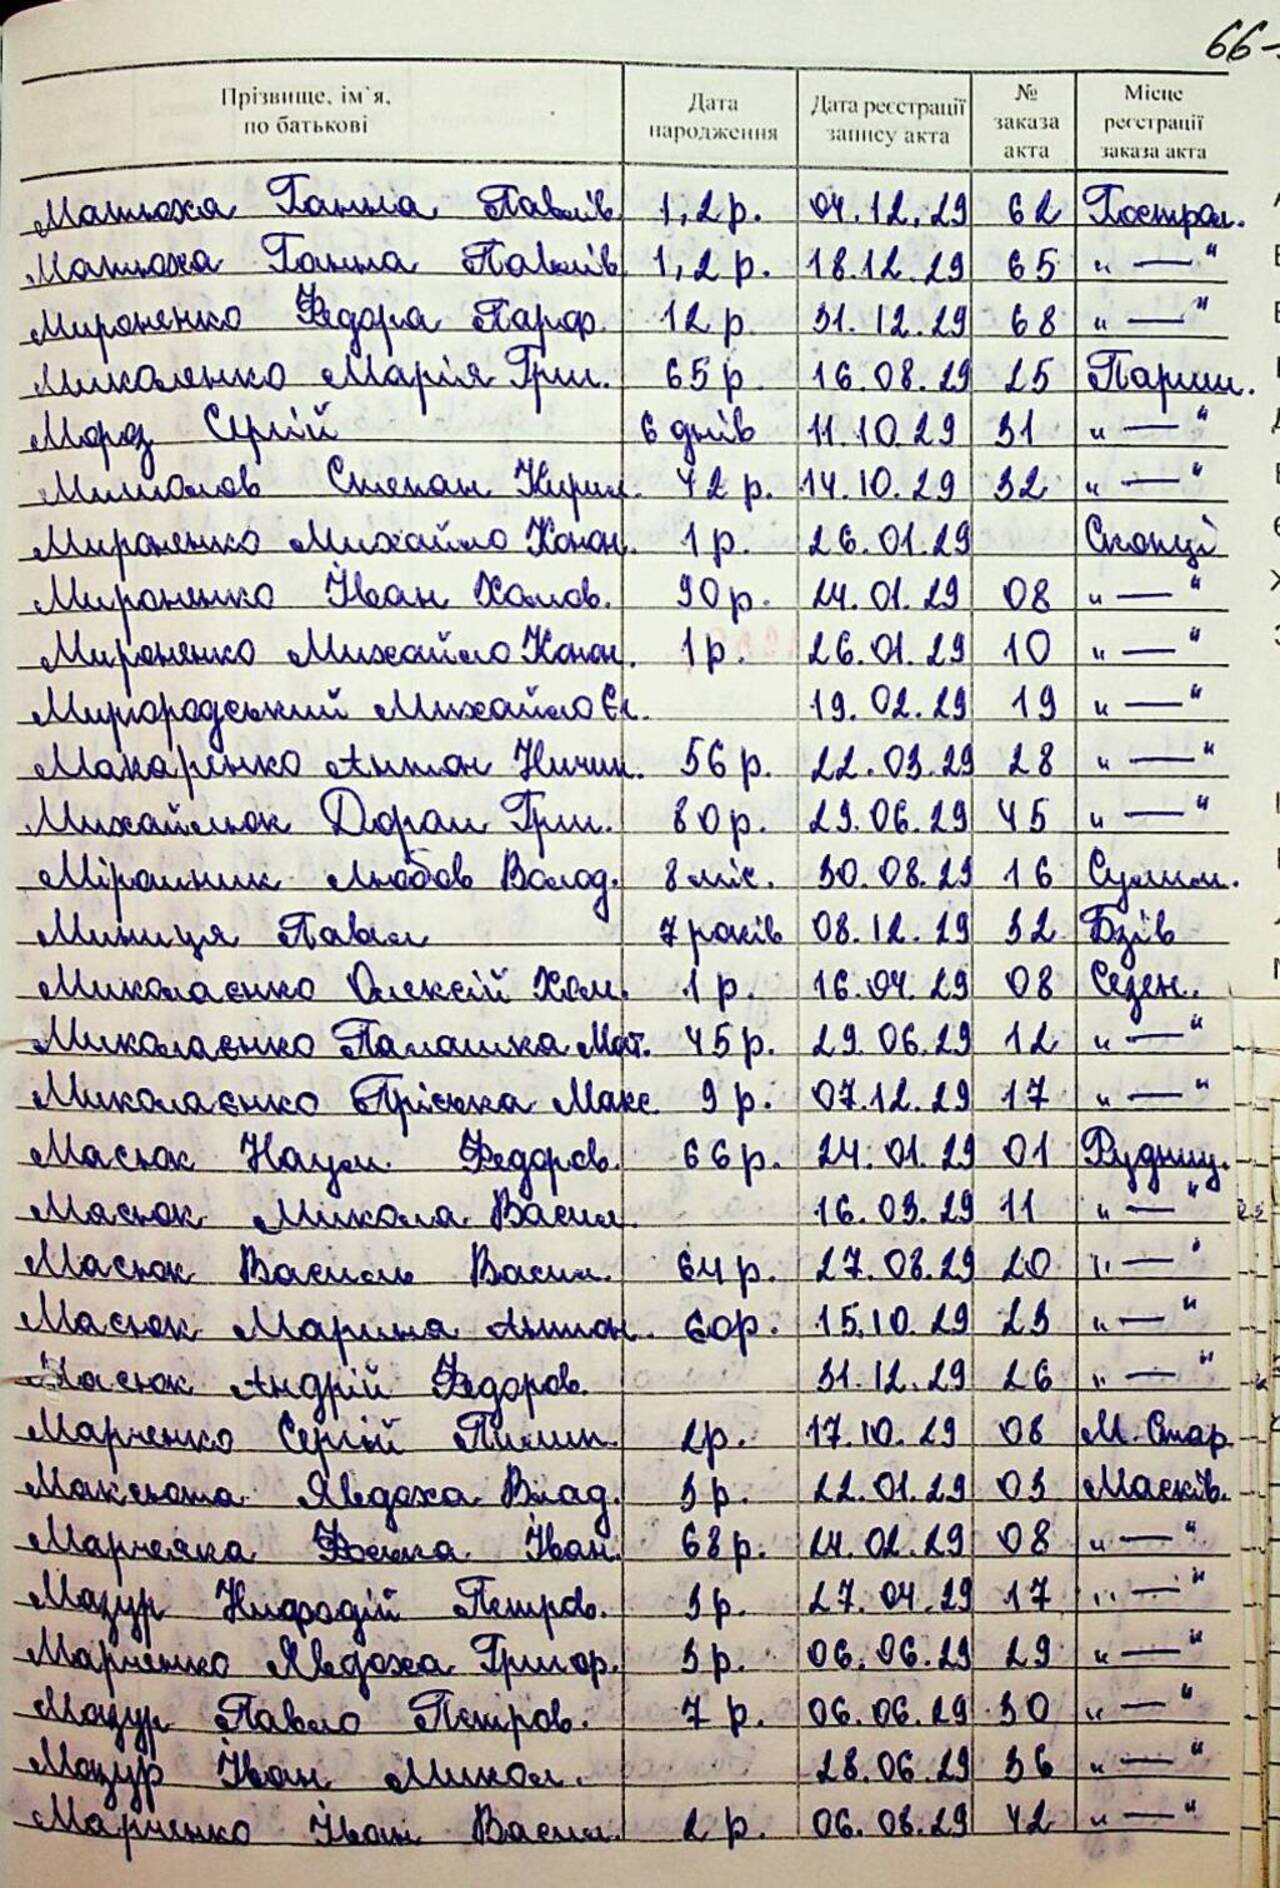 66-
Прізвище, ім`я, по батькові Дата народження Дата реєстрації запису акта № заказа акта Місце реєстрації заказа акта
Матюха Ганна Павлів 1,2 р. 04.12.29 62 Гострол.
Матюха Ганна Павлів 1,2 р. 18.12.29 65 " — "
Мироненко Федора Парф. 12 р. 31.12.29 68 " — "
Миколенко Марія Гри. 65 р. 16.08.29 25 Париш.
Мороз Сергій 6 днів 11.10.29 31 " — "
Степан Кирил. 42 р. 14.10.29 32 " — "
Мироненко Михайло Конон. 1 р. 26.01.29 Скопці
Мироненко Іван Хомов. 90 р. 24.01.29 08 " — "
Мироненко Михайло Конон. 1 р. 26.01.29 10 " — "
Миргородський Михайло Єв. 19.02.29 19 " — "
Макаренко Антон Ничип. 56 р. 22.03.29 28 " — "
Михайлюк Дораш Гри. 80 р. 29.06.29 45 " — "
Мірошник Любов Волод. 8 міс. 30.08.29 16 Сулим.
Миниця Павло 7 років 08.12.29 32 Бзів
Миколаєнко Олексій Хом. 1 р. 16.04.29 08 Сезен.
Миколаєнко Палашка Мат. 45 р. 29.06.29 12 " — "
Миколаєнко Пріська Макс. 9 р. 07.12.29 17 " — "
Масюк Наум Федоров. 66 р. 24.01.29 01 Рудниц.
Масюк Микола Васил. 16.03.29 11 " — "
Масюк Василь Васил. 64 р. 27.08.29 20 " — "
Масюк Марина Антон. 60р. 15.10.29 23 " — "
Масюк Андрій Федоров. 31.12.29 26 " — "
Марченко Сергій Пилип. 2р. 17.10.29 08 М. Стар.
Максюта Явдоха Влад. 3 р. 22.01.29 03 Масків.
Марчейка Фекла Іван. 68 р. 24.02.29 08 " — "
Мазур Нифодій Петров. 3 р. 27.04.29 17 " — "
Марченко Явдоха Григор. 3 р. 06.06.29 29 " — "
Мазур Павло Петров. 7 р. 06.06.29 30 " — "
Мазур Іван Микол. 28.06.29 36 " — "
Марченко Іван Васил. 2 р. 06.08.29 42 " — "